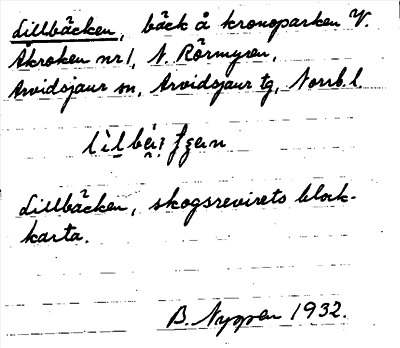 Lillbäcken, bäck å kronoparken V.
Åkroken nr 1, N. Rörmyren,
Arvidsjaur sn, Arvidsjaur tg, Norrb. l.
Lillbäcken, skogsrevirets block-
karta.
B. Nyman 1932.